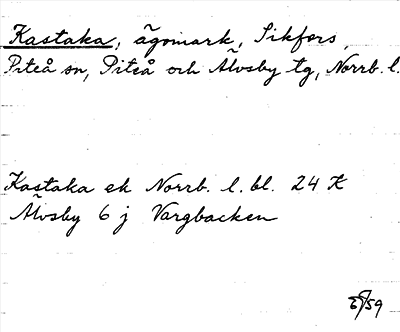 Kastaka, ägomark, Sikfors,
Piteå sn, Piteå och Älvsby tg, Norrb. l.
Kastaka ek Norrb. l. bl. 24 K
Älvsby 6 j Vargbacken